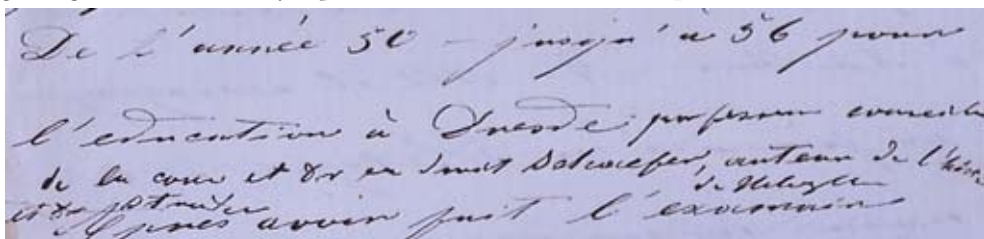 De l'année 50 – jusqu'à 56 pour
l'education à Dresde: professeur conseiller
de la cour et Dr en droit Schaefer, auteur de l'
de
et Dr
Après avoir fait l'examain